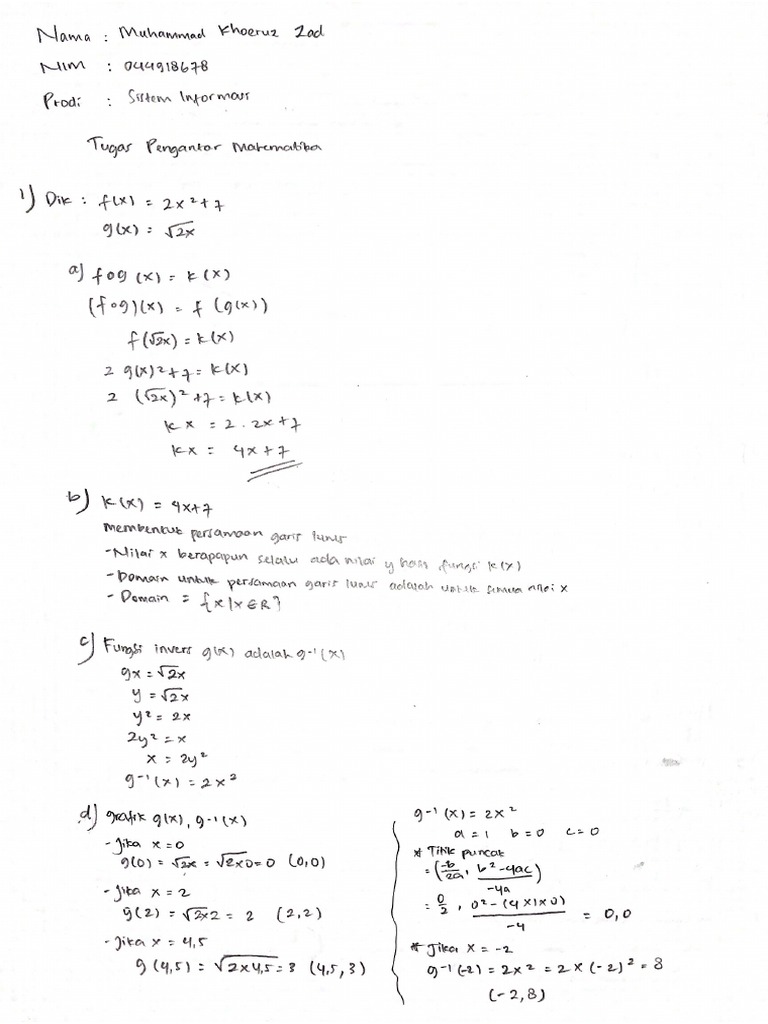 Nama : Muhammad Khoeruz Zad
NIM : 044918678
Prodi : Sistem Informasi
Tugas Pengantar Matematika
1) Dik : f(x) = 2x² + 7
g(x) = √2x
a) fog (x) = k(x)
(fog)(x) = f (g(x))
f(√2x) = k(x)
2 g(x)² + 7 = k(x)
2 (√2x)² + 7 = k(x)
kx = 2 . 2x + 7
kx = 4x + 7
b) k(x) = 4x+7
membentuk persamaan garis lurus
- Nilai x berapapun selalu ada nilai y hasil fungsi k(x)
- Domain untuk persamaan garis lurus adalah untuk semua nilai x
- Domain = {x | x ∈ R}
c) Fungsi invers g(x) adalah g⁻¹(x)
gx = √2x
y = √2x
y² = 2x
2y² = x
x = 2y²
g⁻¹(x) = 2x²
d) grafik g(x), g⁻¹(x)
- Jika x = 0
g(0) = √2x = √2x0 = 0 (0,0)
- Jika x = 2
g(2) = √2x2 = 2 (2,2)
- Jika x = 4,5
g(4,5) = √2x4,5 = 3 (4,5, 3)
g⁻¹(x) = 2x²
a = 1 b = 0 c = 0
* Titik puncak
= (-b/2a, b²-4ac/-4a)
= 0/2, 0²-(4x1x0)/-4 = 0,0
* Jika x = -2
g⁻¹(-2) = 2x² = 2x(-2)² = 8
(-2,8)